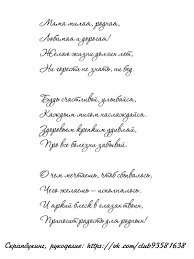 Мама милая, родная,
Любимая и дорогая!
Желаю жизни долгих лет,
Ни горести не знать, ни бед.
Будь счастливой, улыбайся,
Каждым мигом наслаждайся.
Здоровьем крепким удивляй,
Про все болезни забывай.
О чем мечтаешь, чтоб сбывалось,
Чего желаешь – исполнялось.
И яркий блеск в глазах твоих,
Приносит радость для родных!
Скрапбукинг, рукоделие: https://ok.com/club93581638